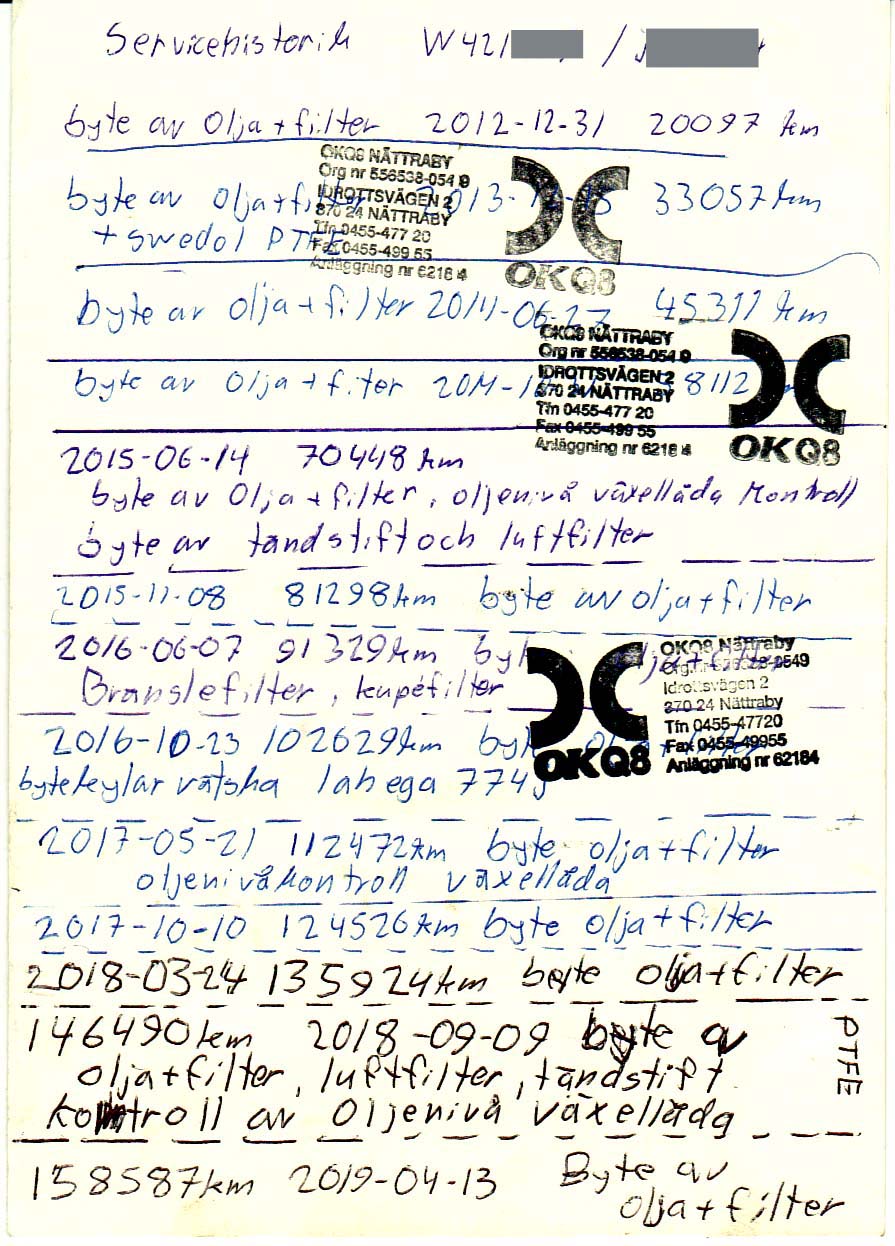 Servicehistorik W421 /
byte av olja + filter 2012-12-31 20097 km
OKQ8 NÄTTRABY
Org nr 556538-054 9
IDROTTSVÄGEN 2
370 24 NÄTTRABY
Tfn 0455-477 20
Fax 0455-499 55
Anläggning nr 6218 4
OKQ8
byte av olja + filter 2013-12- 33057 km
+ swedol PTFE
byte av olja + filter 2014-06-27 45311 km
OKQ8 NÄTTRABY
Org nr 556538-054 9
IDROTTSVÄGEN 2
370 24 NÄTTRABY
Tfn 0455-477 20
Fax 0455-499 55
Anläggning nr 6218 4
OKQ8
byte av olja + filter 8112
2015-06-14 70448 km
byte av olja + filter, oljenivå växellåda kontroll
byte av tändstift och luftfilter
2015-11-08 81298 km byte av olja + filter
2016-06-07 91329 km byte olja + filter
Bränslefilter, kupéfilter
OKQ8
OKQ8 Nättraby
Idrottsvägen 2
370 24 Nättraby
Tfn 0455-47720
Fax 0455-49955
Anläggning nr 62184
2016-10-23 102629 km byt
byte kylar vätska lahega 774
2017-05-21 112472 km byte olja + filter
oljenivåkontroll växellåda
2017-10-10 124526 km byte olja + filter
2018-03-24 135924 km byte olja + filter
146490 km 2018-09-09 byte av
olja + filter, luftfilter, tändstift
kontroll av oljenivå växellåda
PTFE
158587 km 2019-04-13 Byte av
olja + filter